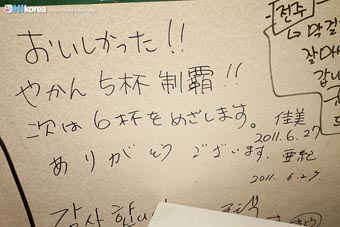 Hi korea
おいしかった!!
やかん5杯制覇!!
次は6杯をめざします。佳美
2011.6.27
ありがとうございます. 亜紀
2011.6.27
감사합니
전주
막걸
잘 마
갑니